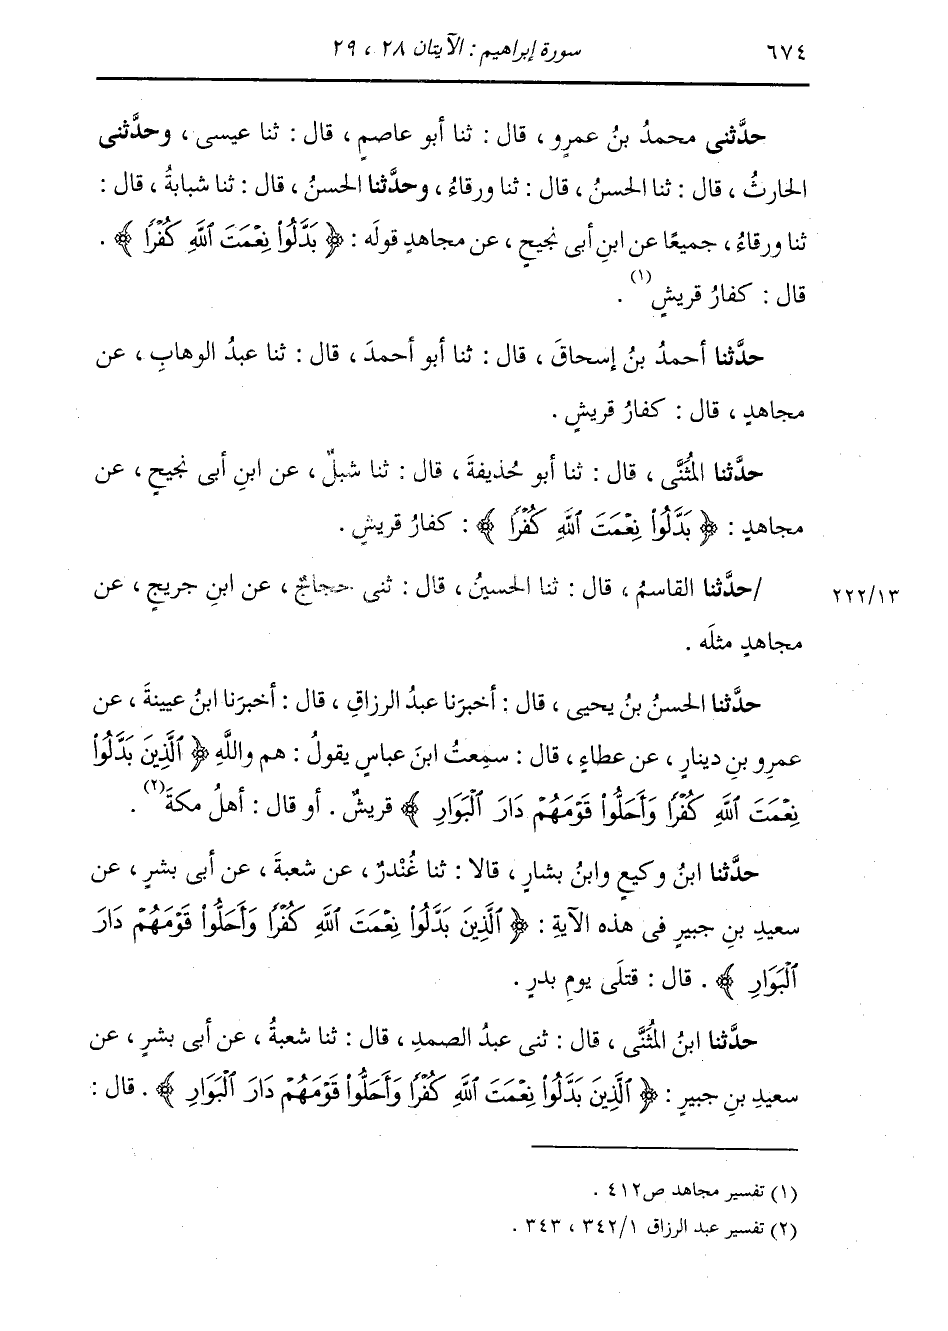 ٦٧٤ سورة إبراهيم : الآيتان ٢٨ ، ٢٩
حدَّثنى محمدُ بنُ عمرٍو ، قال : ثنا أبو عاصمٍ ، قال : ثنا عيسى ، وحدَّثنى
الحارثُ ، قال : ثنا الحسنُ ، قال : ثنا ورقاءُ ، وحدَّثنا الحسنُ ، قال : ثنا شبابةُ ، قال :
ثنا ورقاءُ ، جميعًا عن ابنِ أبى نجيحٍ ، عن مجاهدٍ قولَه : ﴿ بَدَّلُوا۟ نِعْمَتَ ٱللَّهِ كُفْرًا ﴾ .
قال : كفارُ قريشٍ(١) .
حدَّثنا أحمدُ بنُ إسحاقَ ، قال : ثنا أبو أحمدَ ، قال : ثنا عبدُ الوهابِ ، عن
مجاهدٍ ، قال : كفارُ قريشٍ .
حدَّثنا المُثَنَّى ، قال : ثنا أبو حُذيفةَ ، قال : ثنا شبلٌ ، عن ابنِ أبى نجيحٍ ، عن
مجاهدٍ : ﴿ بَدَّلُوا۟ نِعْمَتَ ٱللَّهِ كُفْرًا ﴾ : كفارُ قريشٍ .
/حدَّثنا القاسمُ ، قال : ثنا الحسينُ ، قال : ثنى حجاجٌ ، عن ابنِ جريجٍ ، عن ٢٢٢/١٣
مجاهدٍ مثلَه .
حدَّثنا الحسنُ بنُ يحيى ، قال : أخبرَنا عبدُ الرزاقِ ، قال : أخبرَنا ابنُ عيينةَ ، عن
عمرِو بنِ دينارٍ ، عن عطاءٍ ، قال : سمِعتُ ابنَ عباسٍ يقولُ : هم واللَّهِ ﴿ ٱلَّذِينَ بَدَّلُوا۟
نِعْمَتَ ٱللَّهِ كُفْرًا وَأَحَلُّوا۟ قَوْمَهُمْ دَارَ ٱلْبَوَارِ ﴾ قريشٌ . أو قال : أهلُ مكةَ(٢) .
حدَّثنا ابنُ وكيعٍ وابنُ بشارٍ ، قالا : ثنا غُنْدرٌ ، عن شعبةَ ، عن أبى بشرٍ ، عن
سعيدِ بنِ جبيرٍ فى هذه الآيةِ : ﴿ ٱلَّذِينَ بَدَّلُوا۟ نِعْمَتَ ٱللَّهِ كُفْرًا وَأَحَلُّوا۟ قَوْمَهُمْ دَارَ
ٱلْبَوَارِ ﴾ . قال : قتلَى يومِ بدرٍ .
حدَّثنا ابنُ المُثَنَّى ، قال : ثنى عبدُ الصمدِ ، قال : ثنا شعبةُ ، عن أبى بشرٍ ، عن
سعيدِ بنِ جبيرٍ : ﴿ ٱلَّذِينَ بَدَّلُوا۟ نِعْمَتَ ٱللَّهِ كُفْرًا وَأَحَلُّوا۟ قَوْمَهُمْ دَارَ ٱلْبَوَارِ ﴾ . قال :
(١) تفسير مجاهد ص٤١٢ .
(٢) تفسير عبد الرزاق ٣٤٢/١ ، ٣٤٣ .